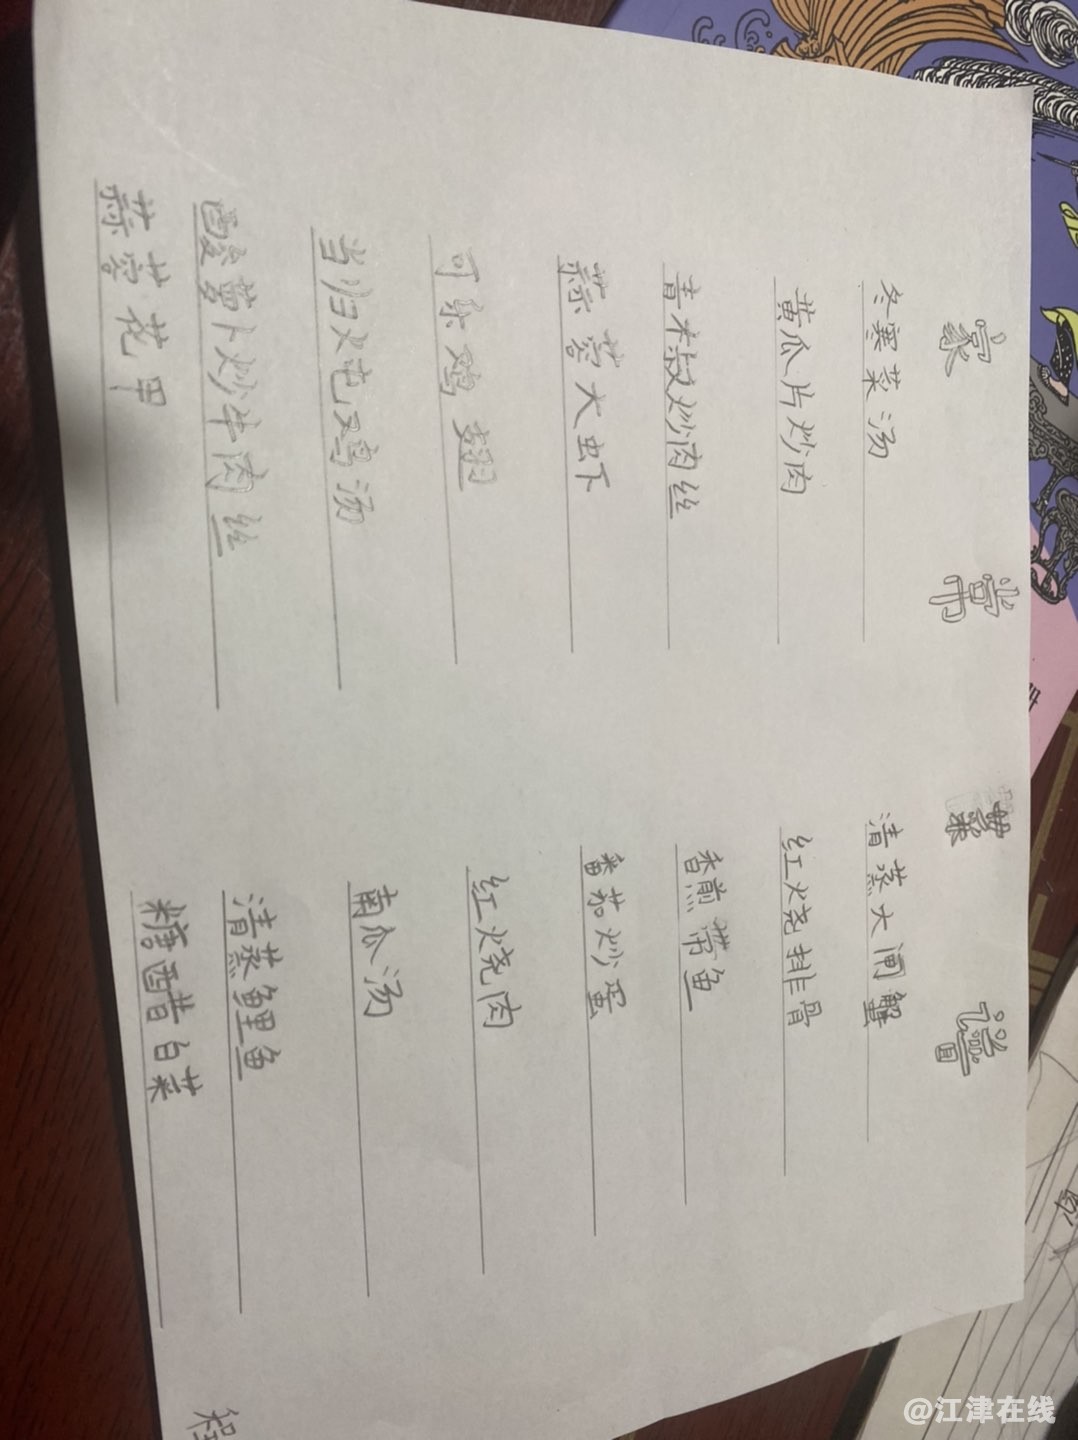 家常菜谱
冬寒菜汤
黄瓜片炒肉
青木椒炒肉丝
蒜蓉大虾
可乐鸡翅
当归火屯鸡汤
酸萝卜炒牛肉丝
蒜蓉花甲
清蒸大闸蟹
红烧排骨
香煎带鱼
番茄炒蛋
红烧肉
南瓜汤
清蒸鲤鱼
糖醋白菜
程
@江津在线